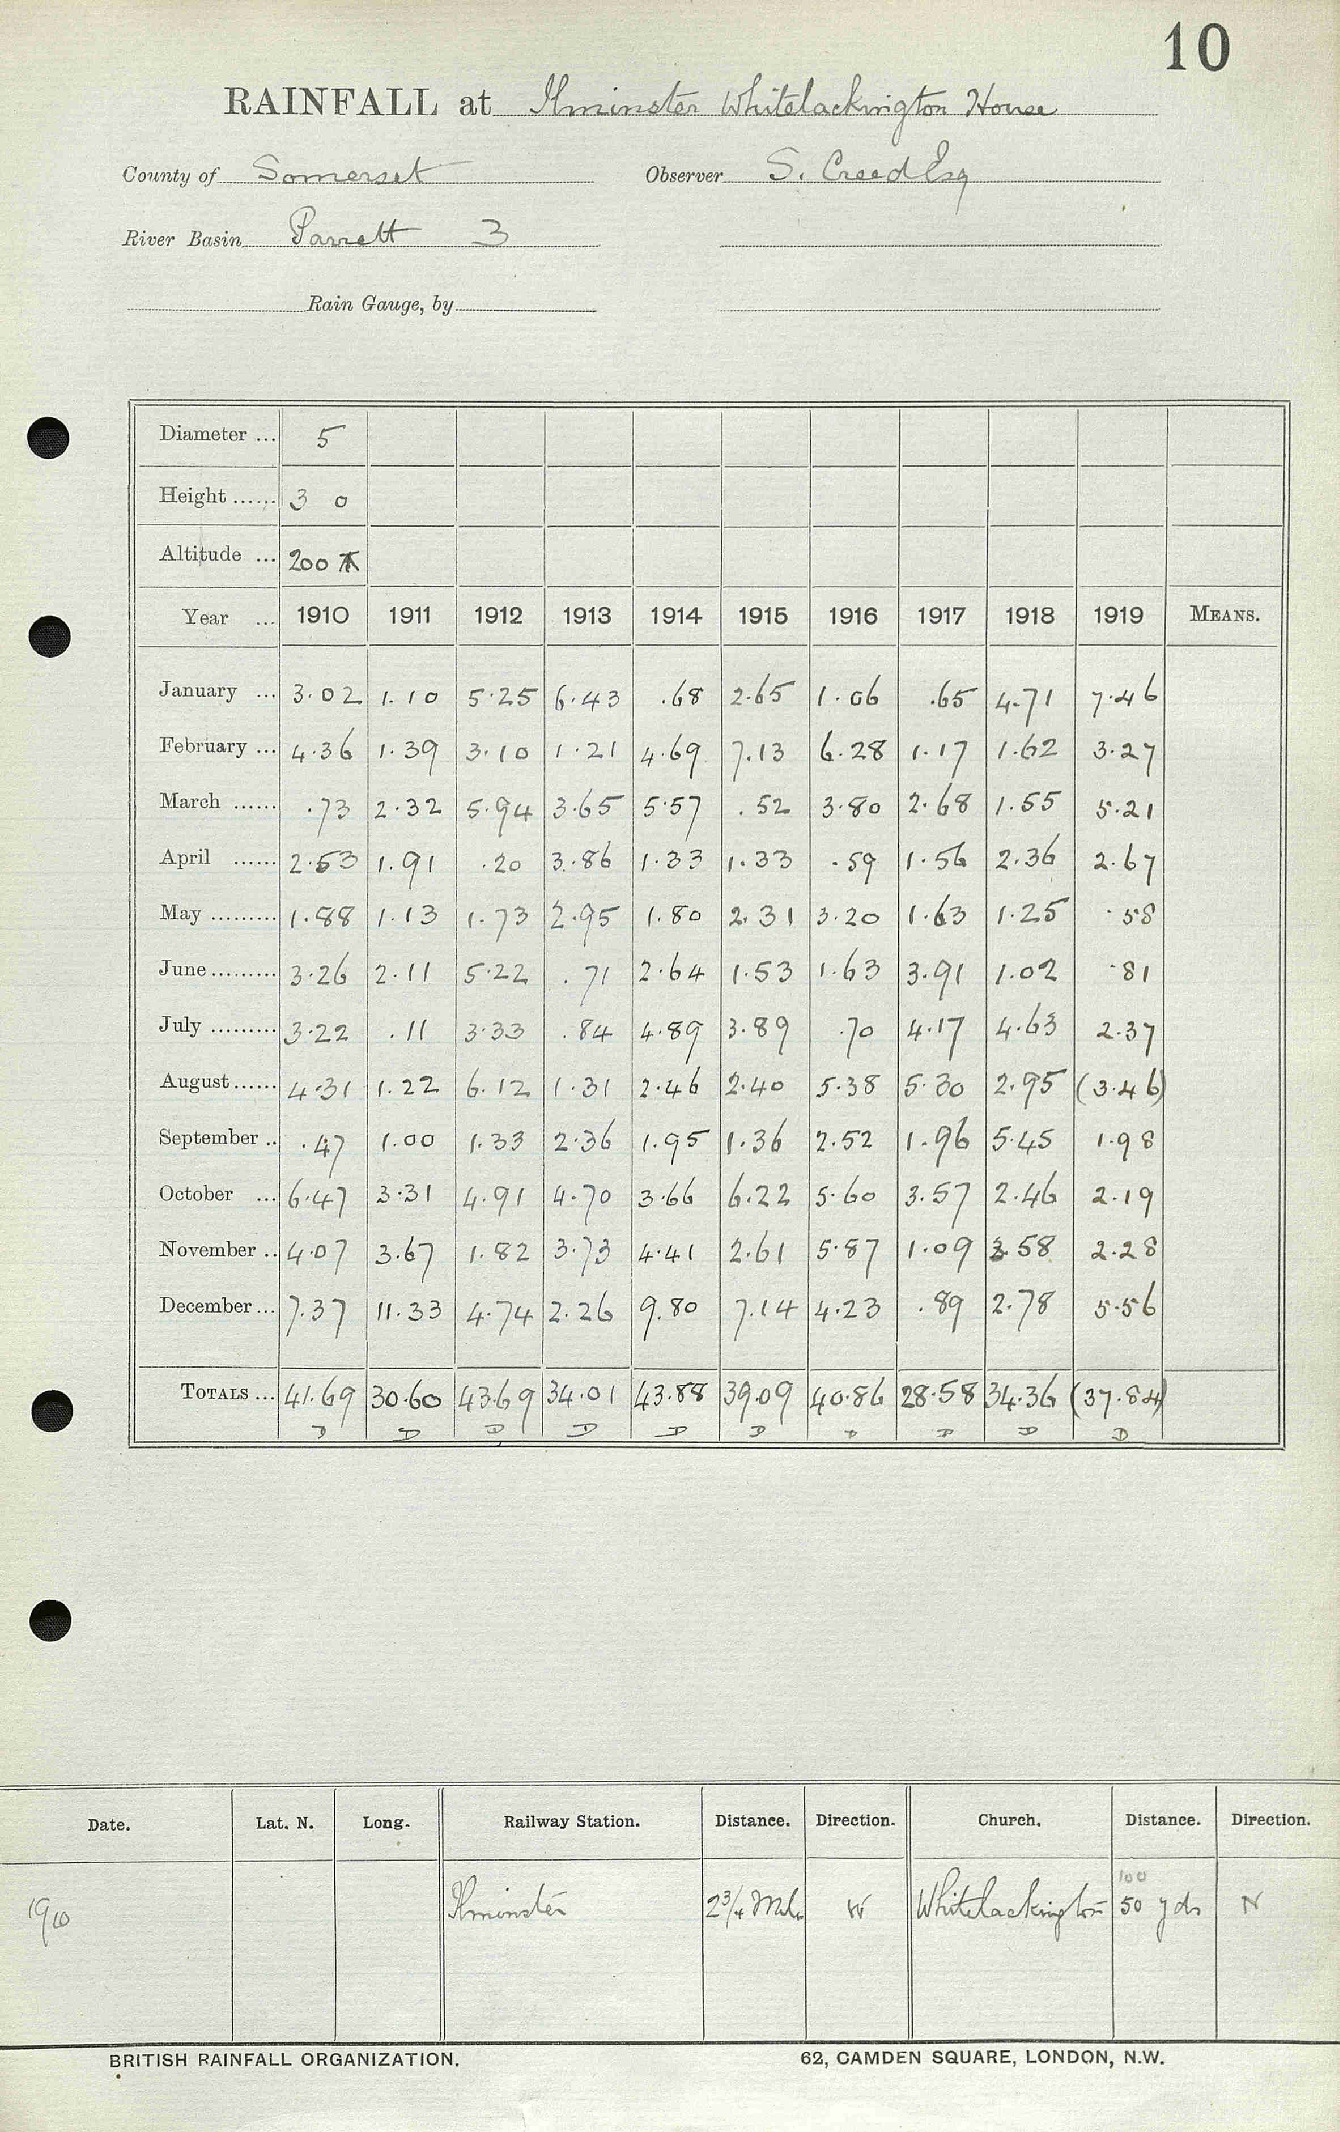 10
RAINFALL at Ilminster Whitelackington House
County of Somerset Observer S. Creed Esq
River Basin Parrett 3
Rain Gauge, by
Diameter ... 5
Height ...... 3 0
Altitude ... 200
Year ... 1910 1911 1912 1913 1914 1915 1916 1917 1918 1919 MEANS.
January ... 3.02 1.10 5.25 6.43 .68 2.65 1.06 .65 4.71 7.46
February ... 4.36 1.39 3.10 1.21 4.69 7.13 6.28 1.17 1.62 3.27
March ...... .73 2.32 5.94 3.65 5.57 .52 3.80 2.68 1.55 5.21
April ...... 2.53 1.91 .20 3.86 1.33 1.33 .59 1.56 2.36 2.67
May ......... 1.88 1.13 1.73 2.95 1.80 2.31 3.20 1.63 1.25 .58
June ......... 3.26 2.11 5.22 .71 2.64 1.53 1.63 3.91 1.02 .81
July ......... 3.22 .11 3.33 .84 4.89 3.89 .70 4.17 4.63 2.37
August ...... 4.31 1.22 6.12 1.31 2.46 2.40 5.38 5.30 2.95 (3.46)
September .. .47 1.00 1.33 2.36 1.95 1.36 2.52 1.96 5.45 1.98
October ... 6.47 3.31 4.91 4.70 3.66 6.22 5.60 3.57 2.46 2.19
November .. 4.07 3.67 1.82 3.73 4.41 2.61 5.87 1.09 3.58 2.28
December ... 7.37 11.33 4.74 2.26 9.80 7.14 4.23 .89 2.78 5.56
TOTALS ... 41.69 30.60 43.69 34.01 43.88 39.09 40.86 28.58 34.36 (37.84)
D D D D D D D D D D
Date. Lat. N. Long. Railway Station. Distance. Direction. Church. Distance. Direction.
100
1910 Ilminster 2 3/4 Mile W Whitelackington 50 yds N
BRITISH RAINFALL ORGANIZATION. 62, CAMDEN SQUARE, LONDON, N.W.